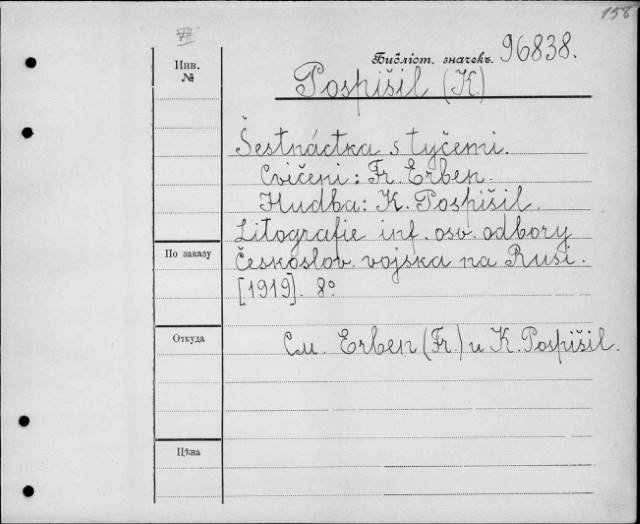 158
VII
Инв. №
Библіот. значекъ. 96838.
Pospíšil (K.)
Šestnáctka s tyčemi.
Cvičeni: Fr. Erben.
Hudba: K. Pospišil.
Litografie inf. osv. odbory
Českoslov. vojska na Rusi.
[1919]. 8º
По заказу
Откуда
См. Erben (Fr.) и K. Pospišil.
Цѣна